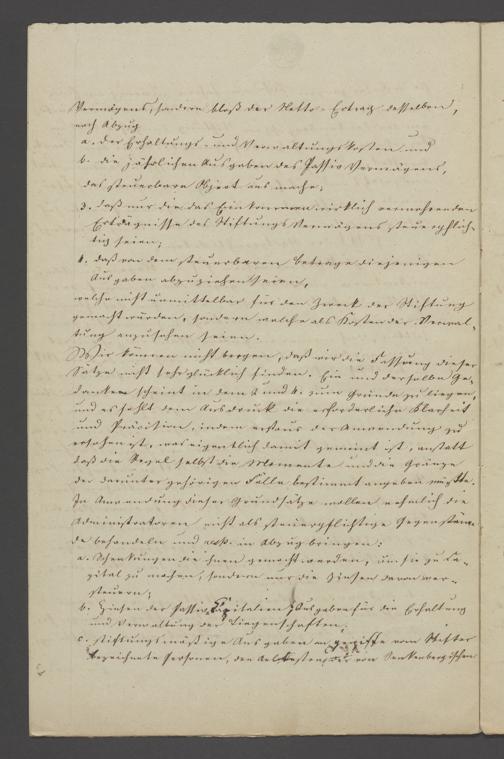 Vermögens, sondern bloß der Netto-Ertrag desselben,
nach Abzug
a. der Erhaltungs- und Verwaltungskosten und
b. die jährlichen Ausgaben des Passiv Vermögens,
das steuerbare Object aus mache;
3. daß nur die das Einkommen wirklich vermehrenden
Erträgnisse des Stiftungs Vermögens steuerpflich-
tig seien;
4. daß von dem steuerbaren Betrage diejenigen
Ausgaben abzuziehen seien,
welche nicht unmittelbar für den Zweck der Stiftung
gemacht würden, sondern welche als Kosten der Verwal-
tung anzusehen seien.
Wir können nicht bergen, daß wir die Fassung dieser
Sätze nicht sehr glücklich finden. Ein und derselbe Ge-
danken scheint in dem 2 und 4. zum Grunde zu liegen,
und es fehlt dem Ausdruck die erforderliche Klarheit
und Präcision, indem erst aus der Anwendung zu
ersehen ist, was eigentlich damit gemeint ist, anstatt
daß die Regel selbst die Momente und die Gränze
der darunter gehörigen Fälle bestimmt angeben müßte.
In Anwendung dieser Grundsätze wollen nehmlich die
Administratoren nicht als steuerpflichtige Gegenstän-
de behandeln und resp. in Abzug bringen:
a. Schenkungen die ihnen gemacht werden, um sie zu Ca-
pital zu machen, sondern nur die Zinsen davon ver-
steuern;
b. Zinsen der Passiv Capitalien, Ausgaben für die Erhaltung
und Verwaltung der Liegenschaften,
c. stiftungsmäßige Ausgaben an gewisse vom Stifter
bezeichnete Personen, den Aeltesten der von Senkenbergischen